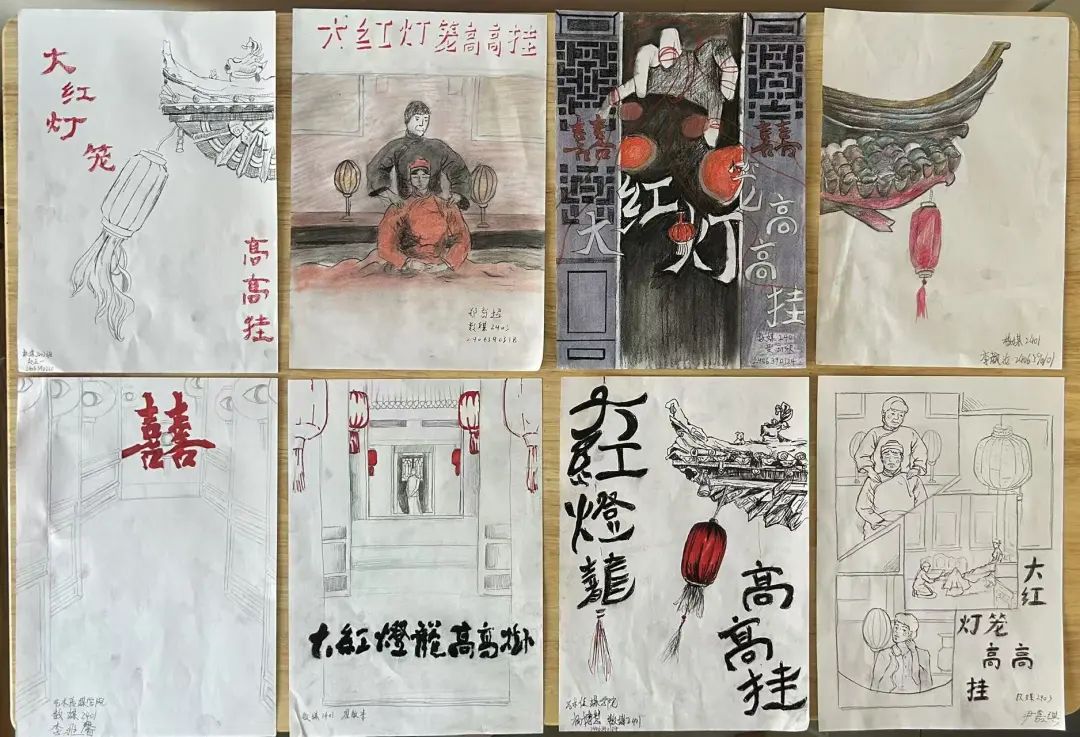 大红灯笼
高高挂
大红灯笼高高挂
数媒2403
囍
囍
大红灯笼高高挂
数媒2401
数媒2401
囍
数媒2401
大红燈籠高高掛
数媒2401
大紅燈籠
高高挂
数媒2401
大红
灯笼
高高
挂
数媒2403